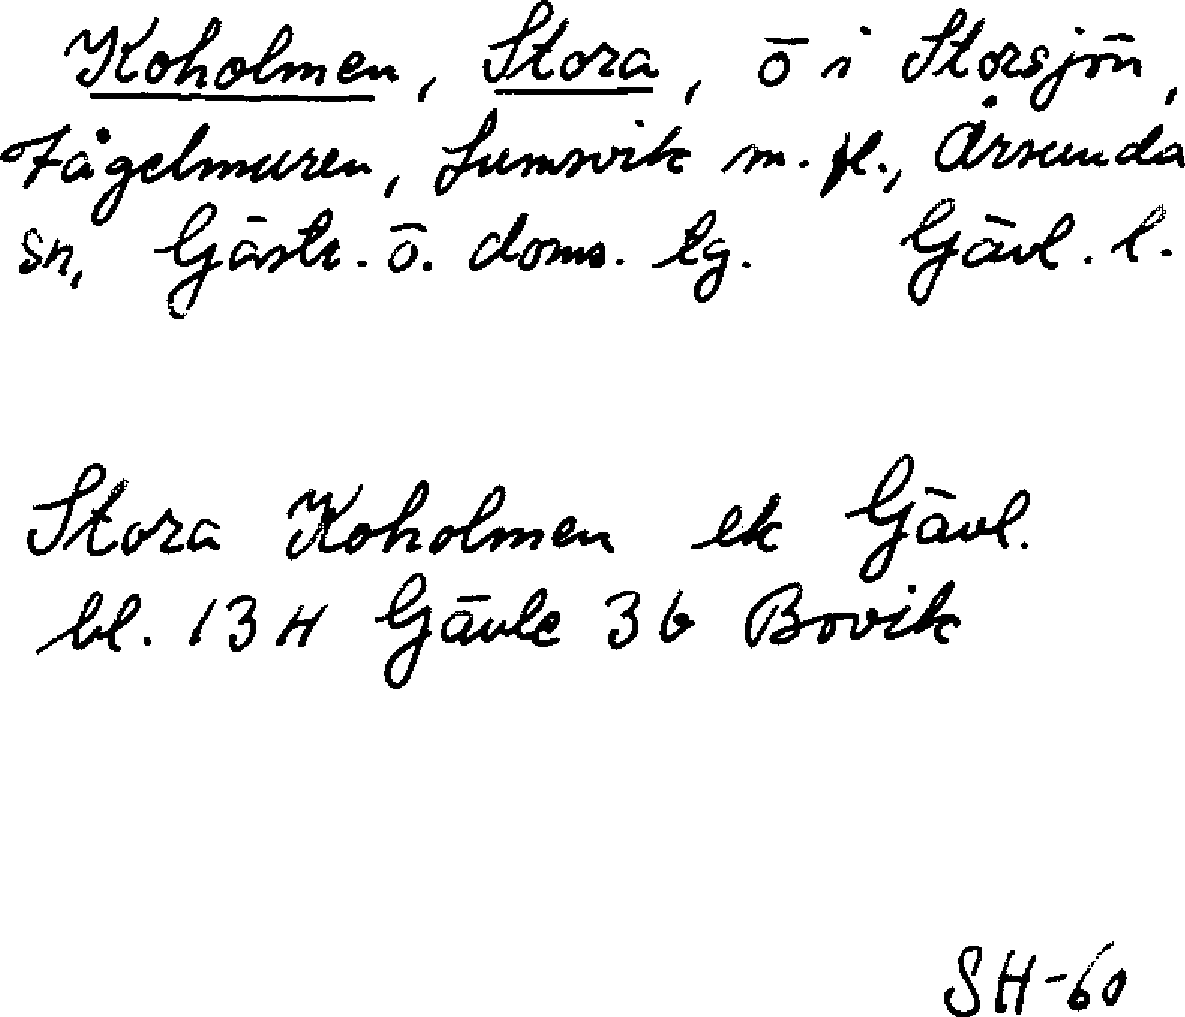 Koholmen, Stora, ö i Storsjön,
Fågelmuren, Lumsvik m. fl., Årsunda
sn, Gästr. ö. doms. tg. Gävl. l.
Stora Koholmen ek Gävl.
bl. 13 H Gävle 3 b Bovik
SH-60